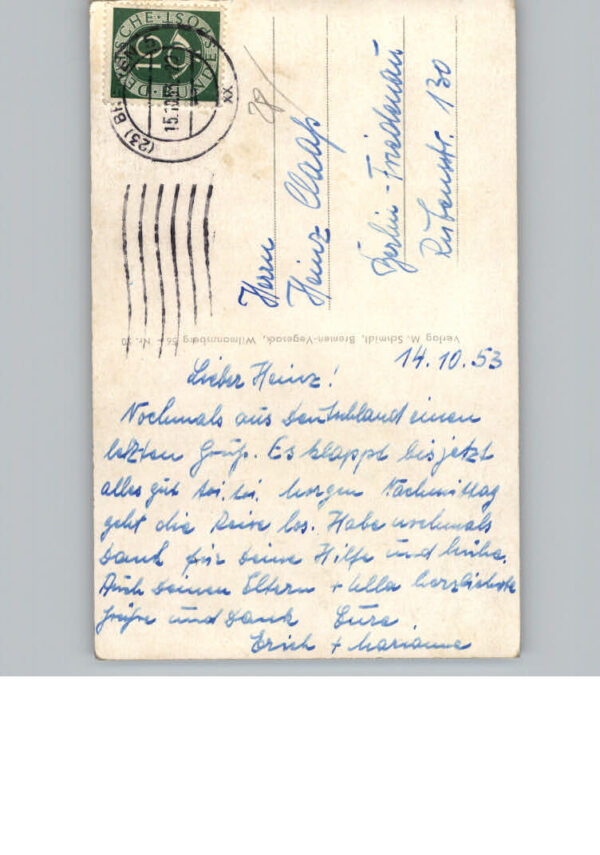 DEUTSCHE BUNDESPOST
10
(23) BREMEN
15.10.53
XX
Herrn
Heinz Claaß
Berlin-Friedenau
Rubensstr. 130
Verlag M. Schmidt, Bremen-Vegesack, Wilmannsberg
14.10.53
Lieber Heinz!
Nochmals aus Deutschland einen
letzten Gruß. Es klappt bis jetzt
alles gut toi. toi. Morgen Nachmittag
geht die Reise los. Habe nochmals
Dank für Deine Hilfe und Mühe.
Auch Deinen Eltern + Ulla herzlichste
Grüße und Dank Eure
Erich + Marianne